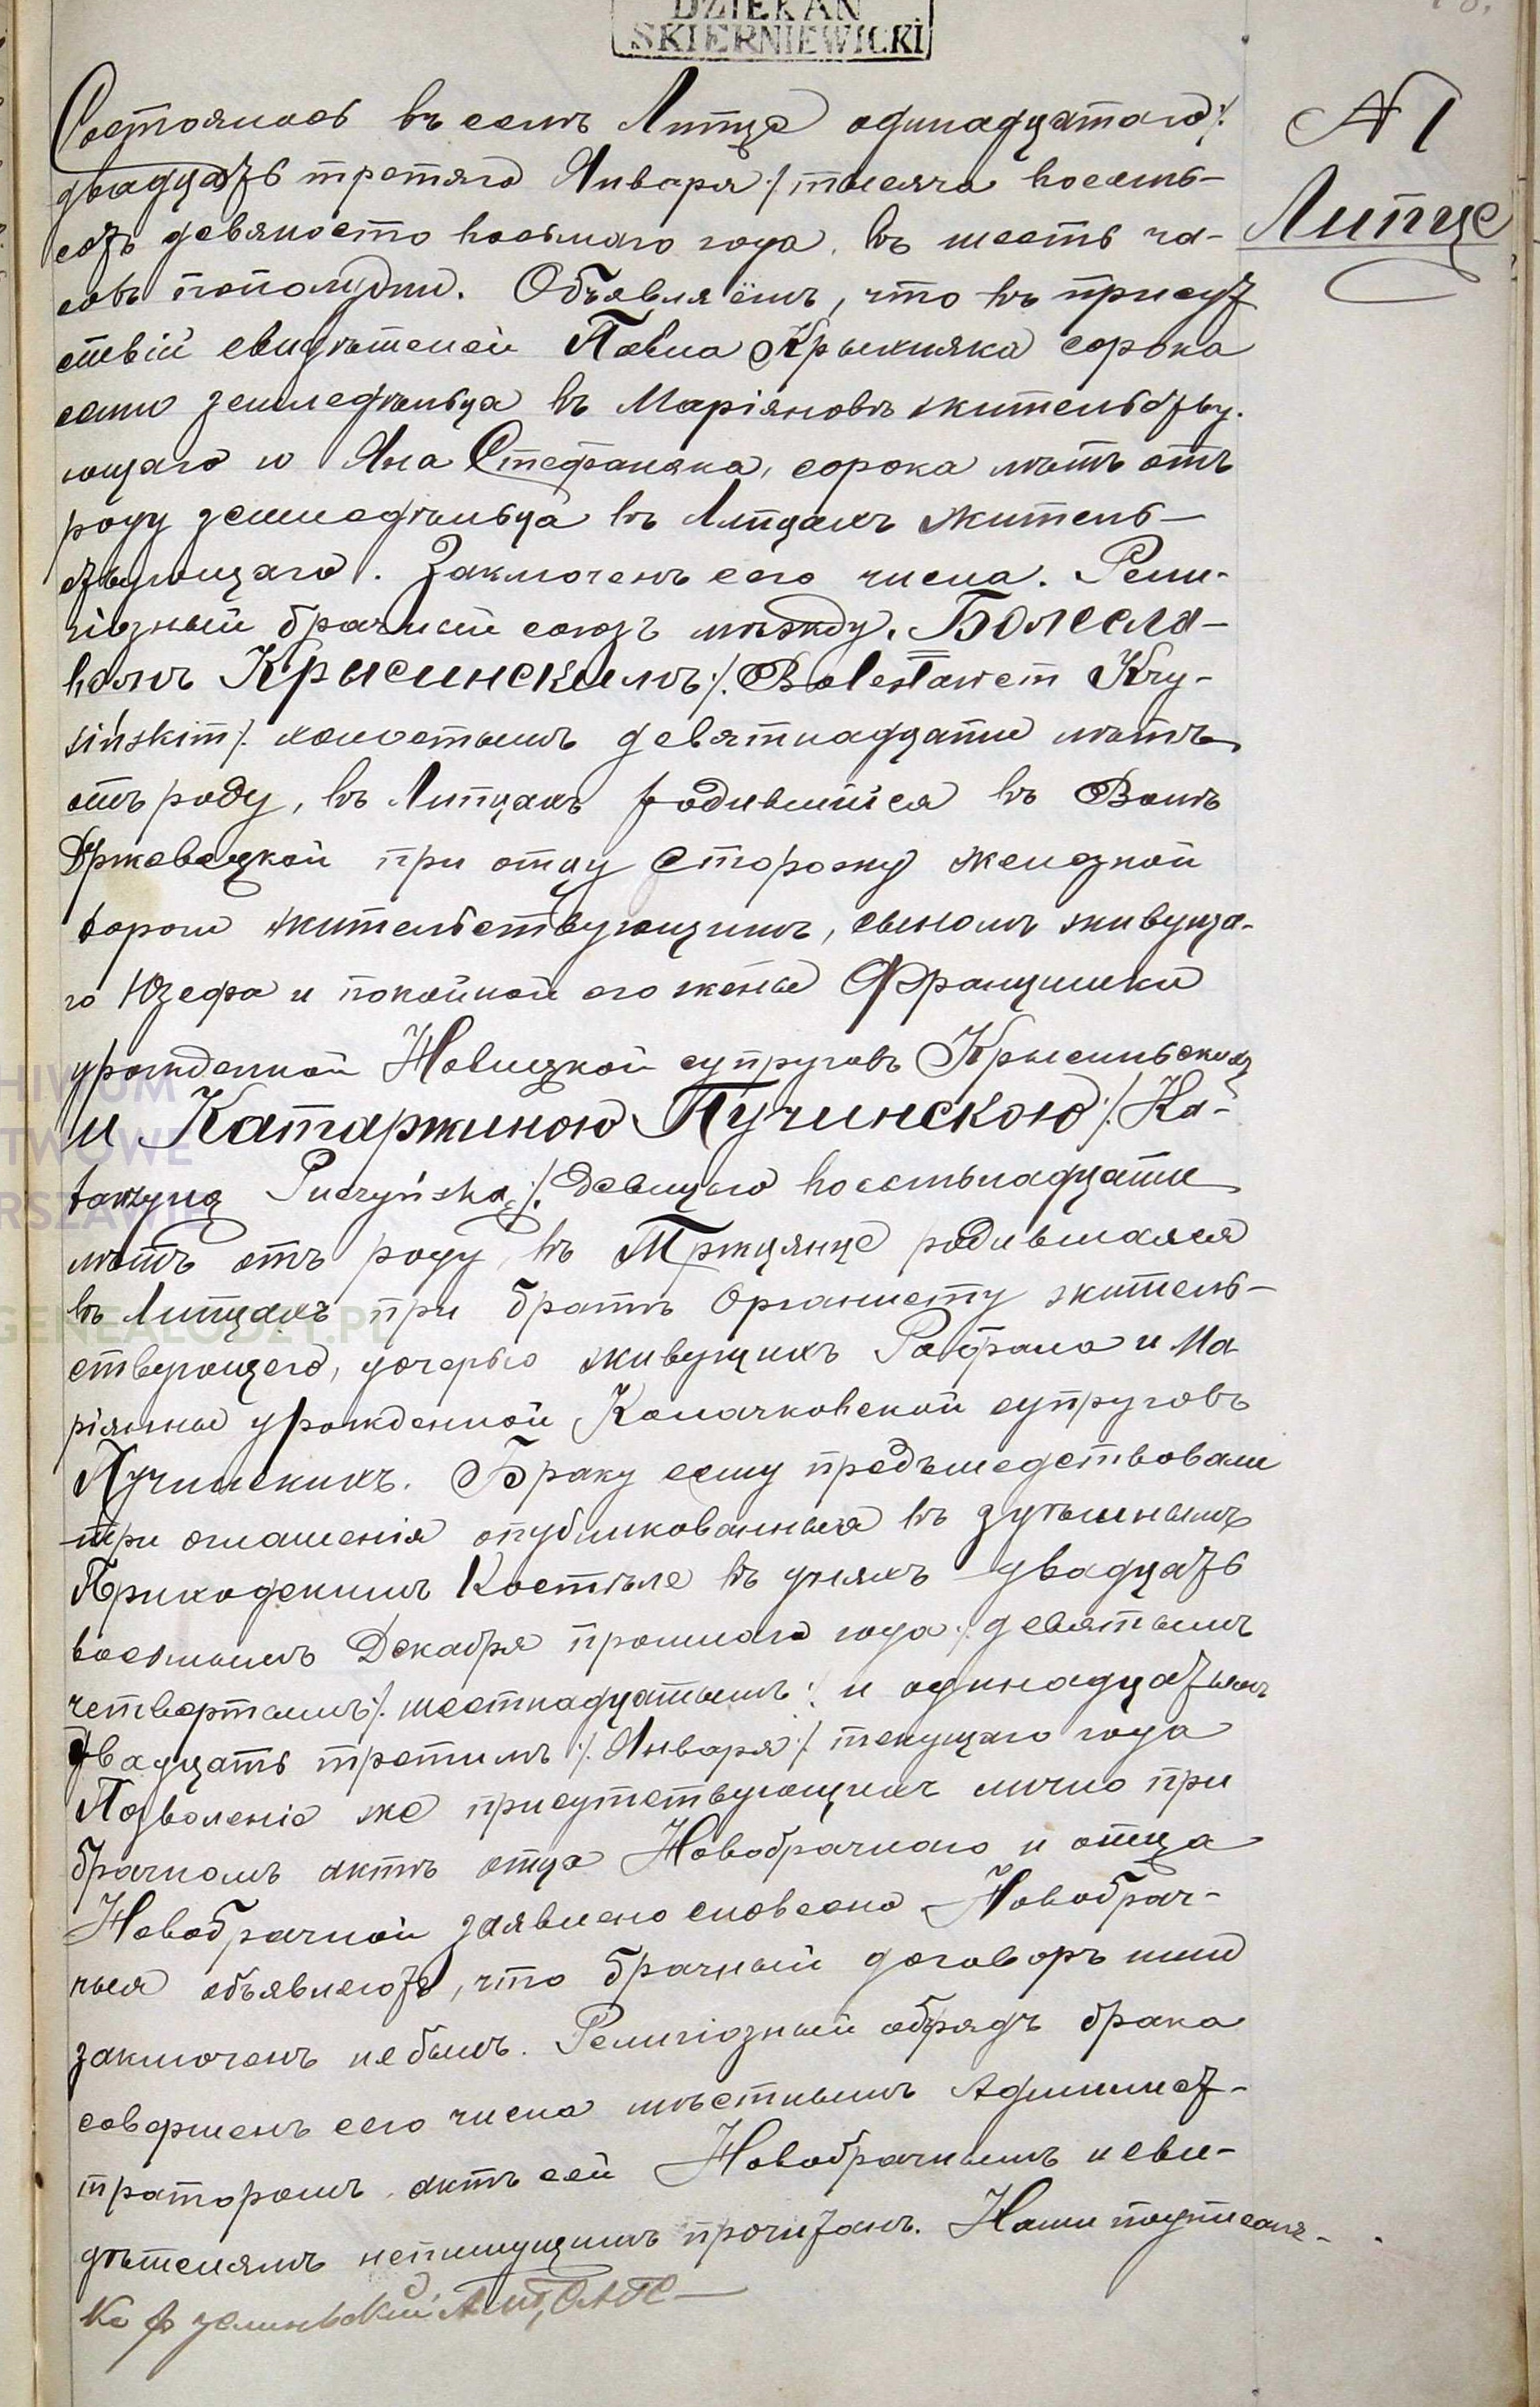 DZIEKAN
SKIERNIEWICKI
№ 1
Липце
Состоялось въ селѣ Липце одинадцатаго /:
двадцать третяго Января :/ тысяча восемь-
сотъ девяносто восьмаго года, въ шесть ча-
совъ пополудни. Объявляемъ, что въ присут
ствіи свидѣтелей Павла Крыхняка сорока
семи земледѣльца въ Маріяновѣ жительству-
ющаго и Яна Стефаняка, сорока лѣтъ отъ
роду земледѣльца въ Липцахъ житель-
ствующаго. Заключенъ сего числа. Рели-
гіозный брачный союзъ между. Болесла-
вомъ Крысинскимъ /: Bolesławem Kry-
sińskim /: холостымъ девятнадцати лѣтъ
отъ роду, въ Липцахъ родившійся въ Волѣ
Држевецкой при отцу Сторожу железной
дороги жительствующимъ, сыномъ живуща-
го Юзефа и покойной его жены Францишки
урожденной Новицкой супруговъ Крысинскихъ
и Катаржиною Пучинскою /: Ka-
tarzyną Puczyńską :/ девицею восемьнадцати
лѣтъ отъ роду, въ Тржцянце родившаяся
въ Липцахъ при братѣ Органисту житель-
ствующаго, дочерью живущихъ Рафала и Ма
ріянны урожденной Колачковской супруговъ
Пучинскихъ. Браку сему предъшедствовали
три оглашенія опубликованныя въ здѣшнымъ
Приходскимъ Костѣле въ дняхъ двадцать
восьмымъ Декабря прошлаго года /: девятымъ
четвертымъ /: шестнадцатымъ :/ и одинадцатымъ
двадцать третимъ :/ Января :/ текущаго года
Позволеніе же присутствующихъ лично при
брачномъ актѣ отца Новобрачнаго и отца
Новобрачной заявлено словесно Новобрач-
ныя объявляютъ, что брачный договоръ ими
заключенъ небылъ. Религіозный обрядъ брака
совершенъ сего числа мѣстнымъ Админист-
траторомъ. актъ сей Новобрачнымъ и сви-
дѣтелямъ непишущимъ прочитанъ. Нами подписанъ